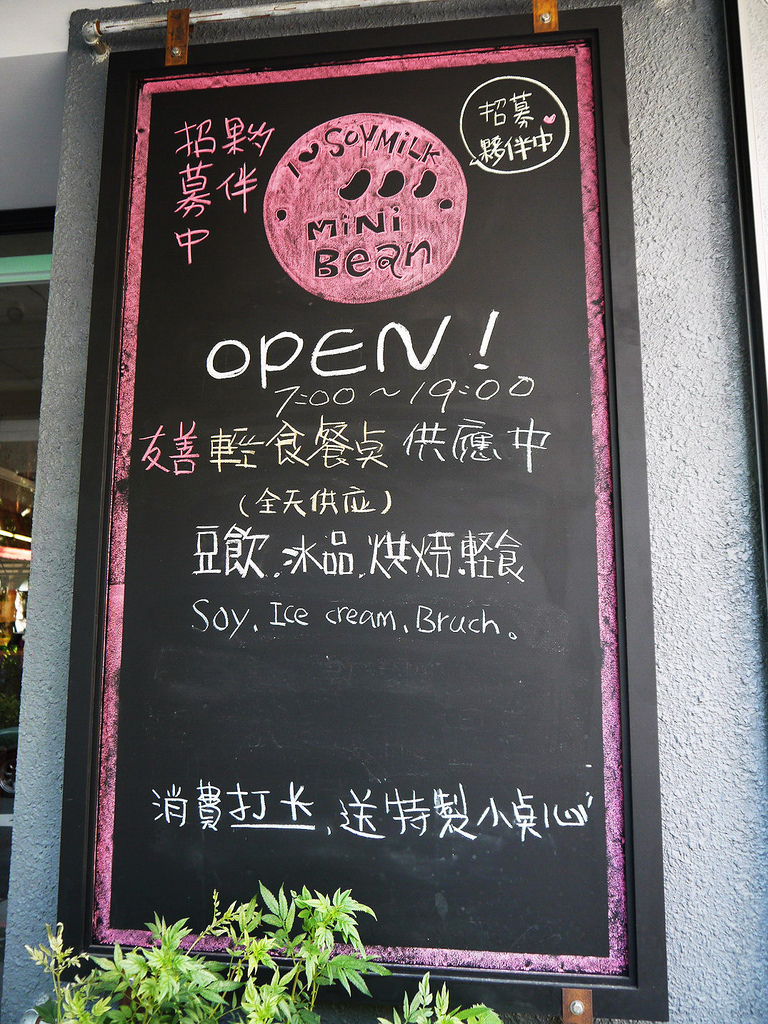 招募夥伴中
I ♥ SOYMILK
MINI
BEan
招募
夥伴中
OPEN!
7:00~19:00
友善輕食餐点供應中
(全天供应)
豆飲.冰品.烘焙.軽食
Soy. Ice cream. Bruch。
消費打卡,送特製小点心